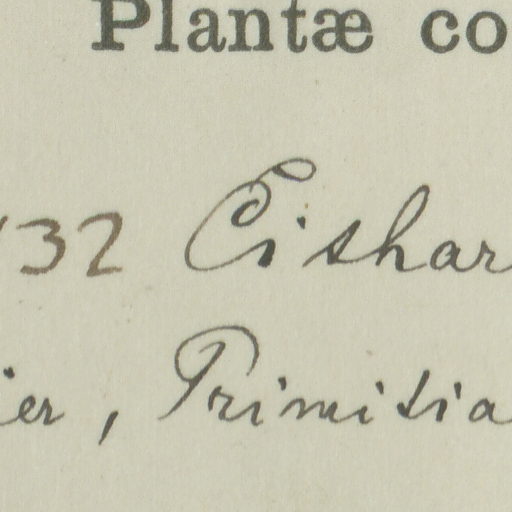 Plantæ co
132 Cishar
ier, Primitia